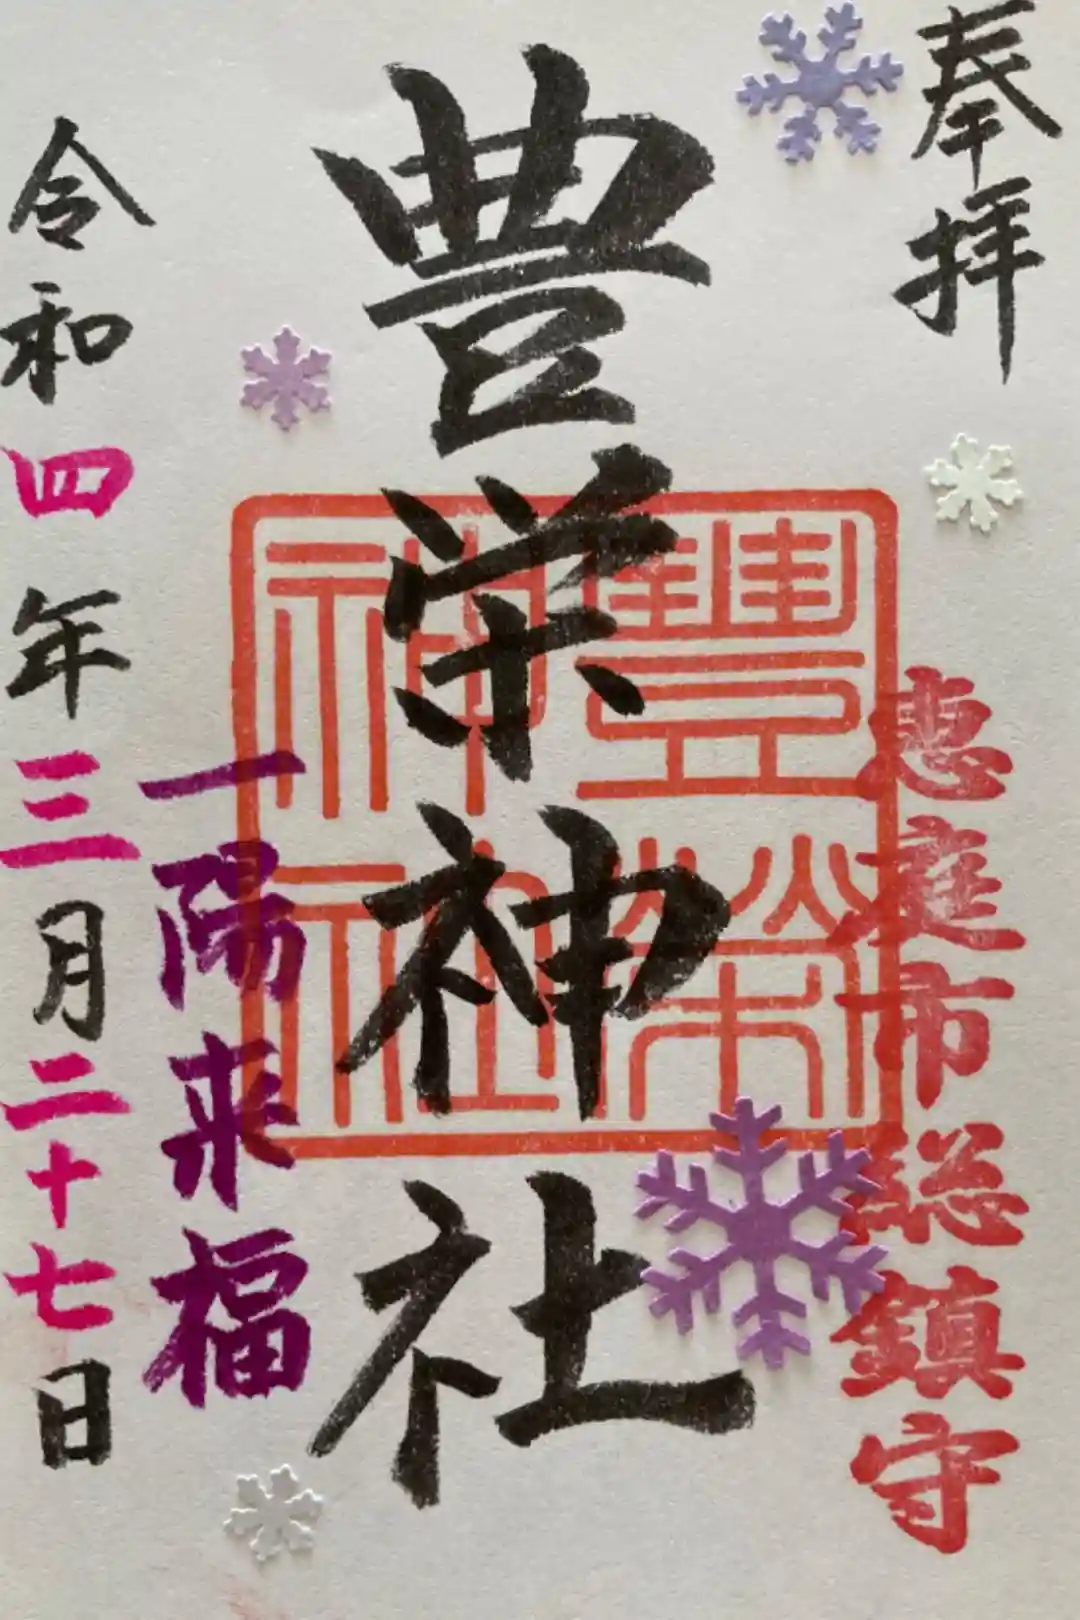 奉拝
恵庭市総鎮守
豊栄神社
豐榮
神社
一陽来福
令和四年三月二十七日